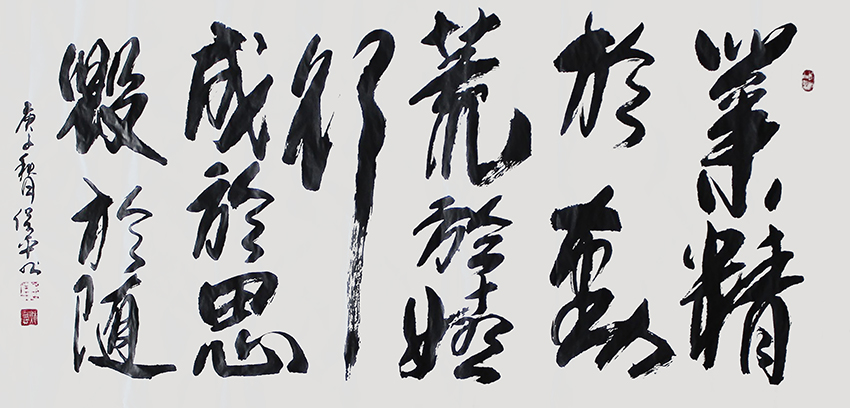 業精
於勤
荒於嬉
行
成於思
毀於随
庚子秋月